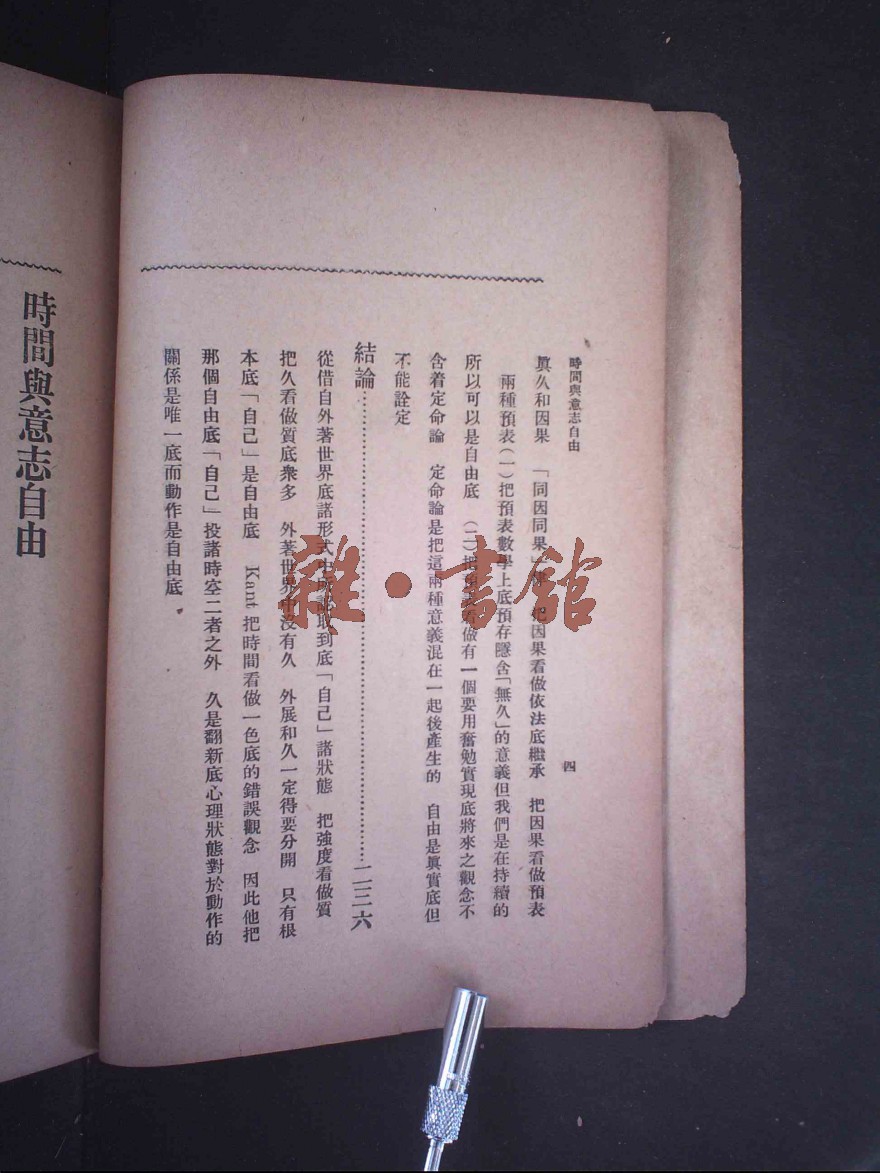 時間與意志自由
四
眞久和因果 「同因同果」律 把因果看做依法底繼承 把因果看做預表
兩種預表(一)把預表數學上底預存隱含「無久」的意義但我們是在持續的
所以可以是自由底 (二)把預表看做有一個要用奮勉實現底將來之觀念不
含着定命論 定命論是把這兩種意義混在一起後產生的 自由是眞實底但
不能詮定
結論……二三六
從借自外著世界底諸形式中所認取到底「自己」諸狀態 把強度看做質
把久看做質底衆多 外著世界中沒有久 外展和久一定得要分開 只有根
本底「自己」是自由底 Kant 把時間看做一色底的錯誤觀念 因此他把
那個自由底「自己」投諸時空二者之外 久是翻新底心理狀態對於動作的
關係是唯一底而動作是自由底
時間與意志自由
雜·書館